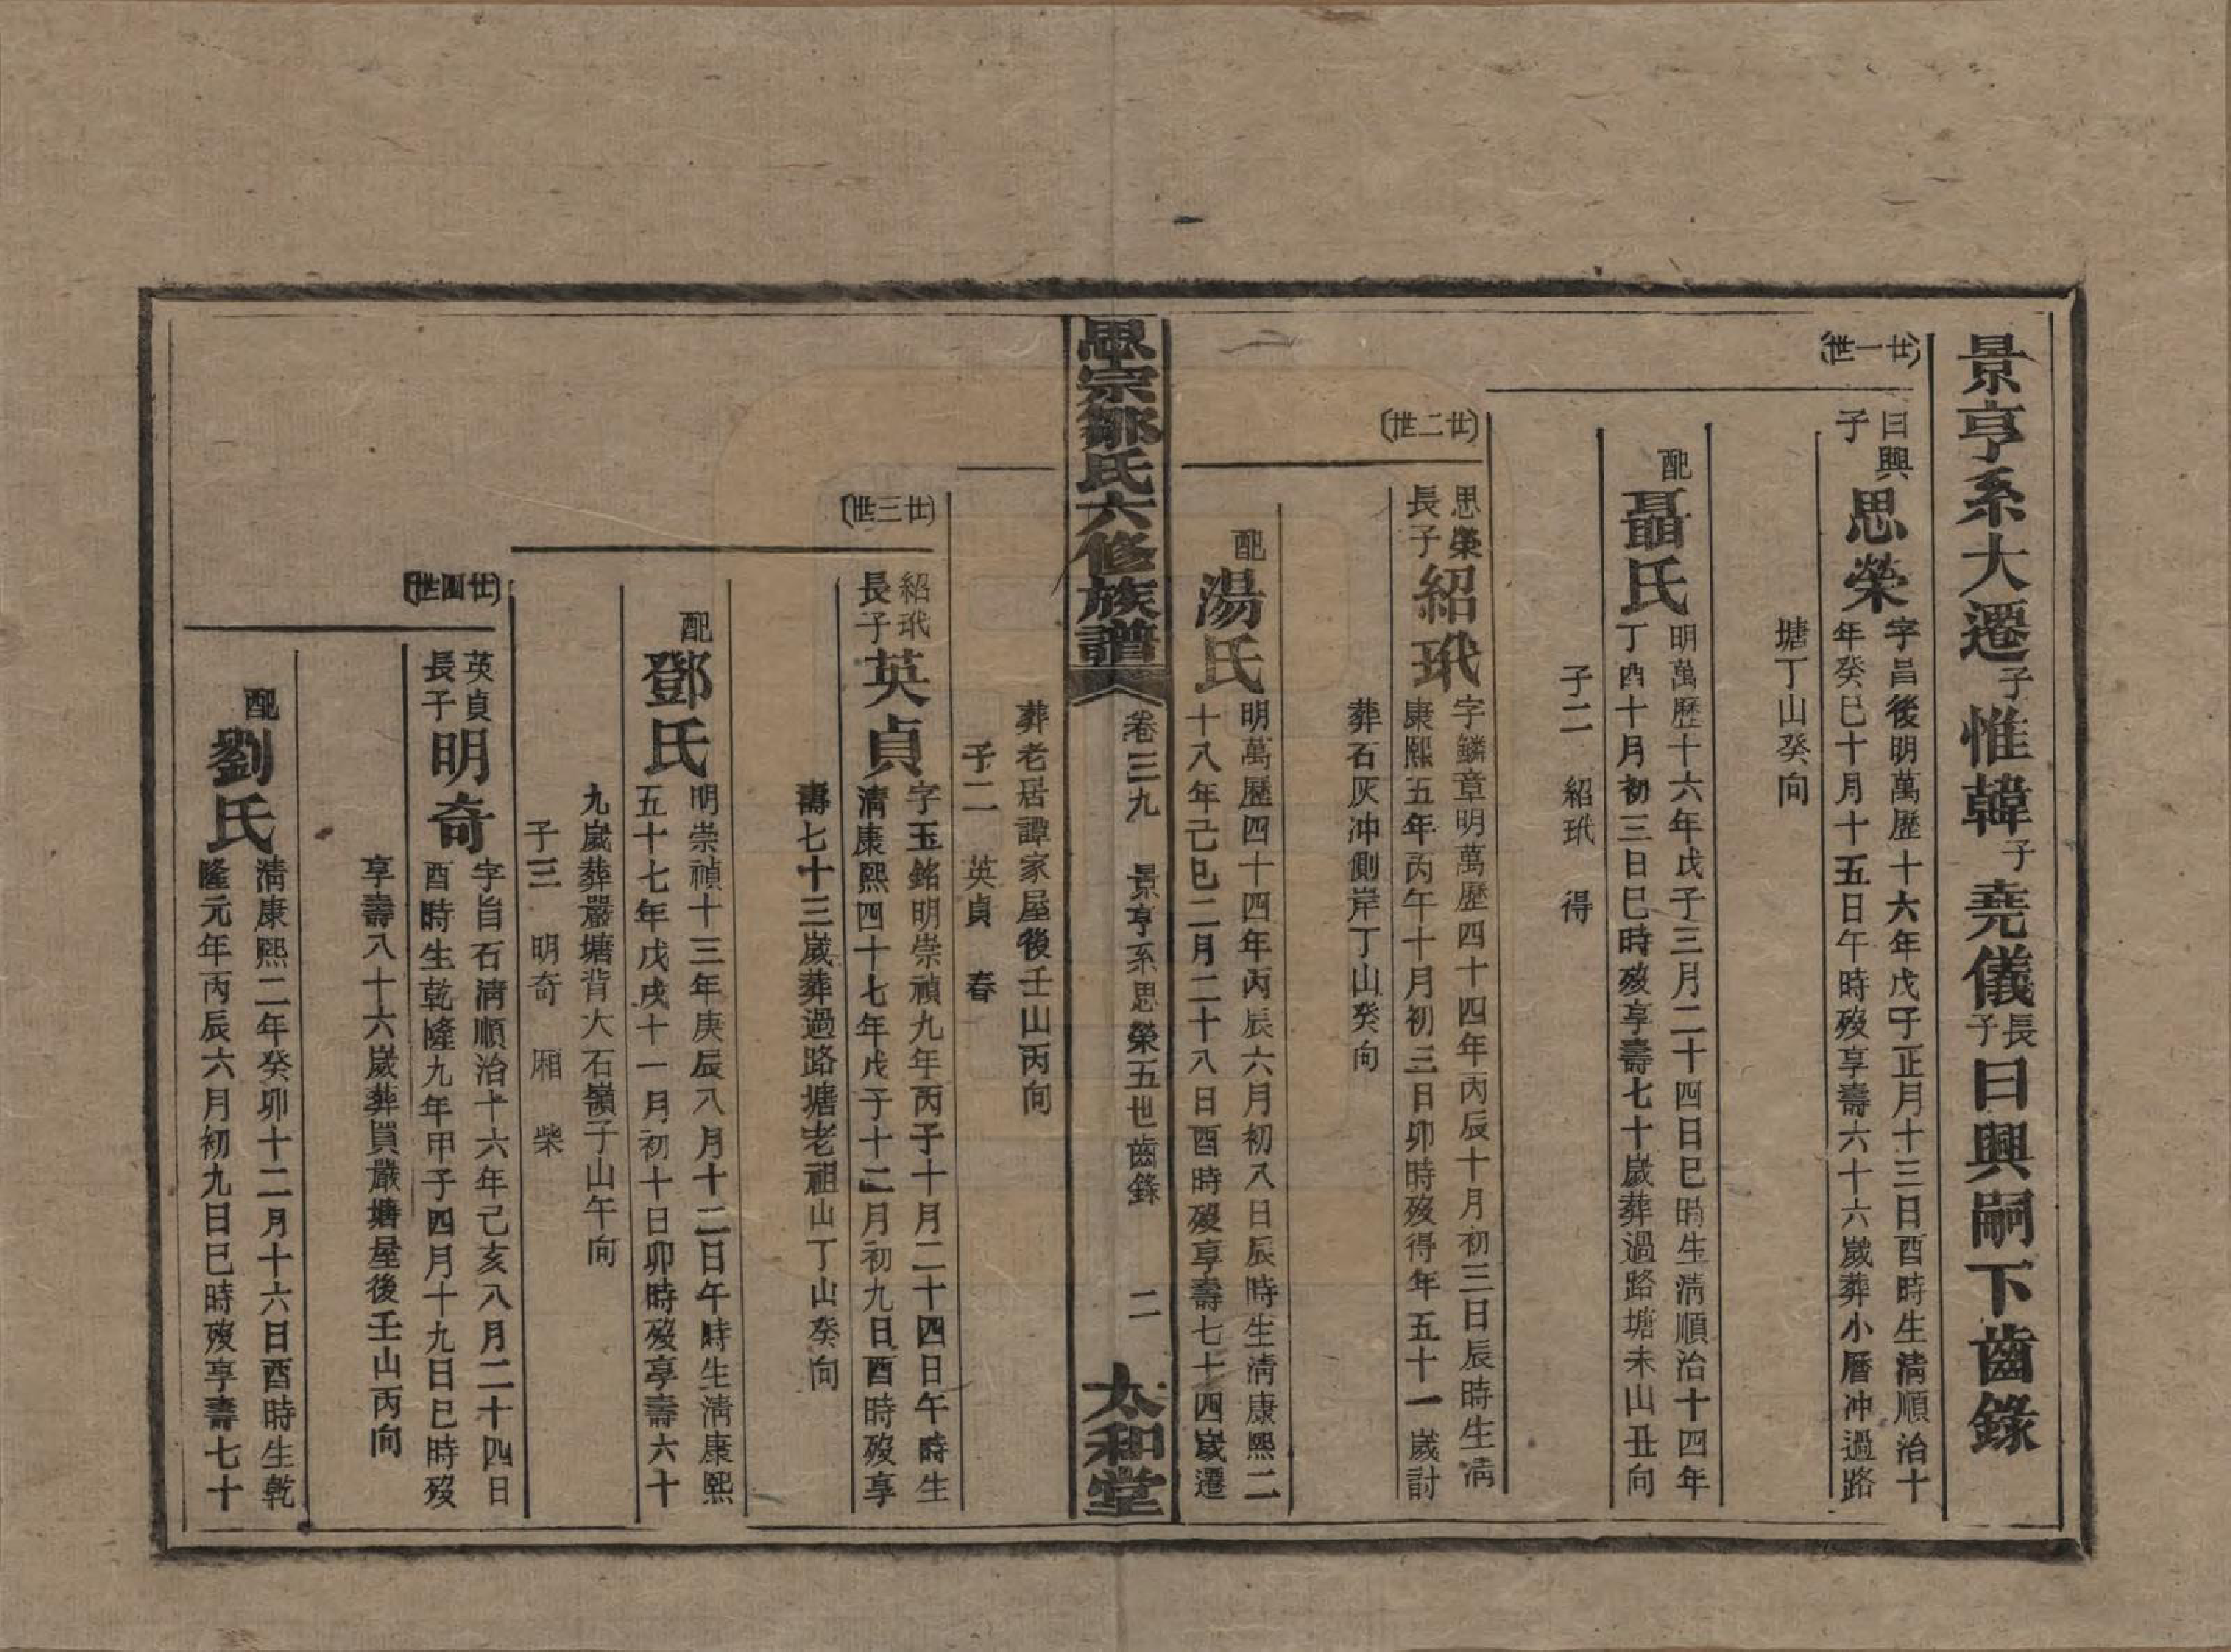 景亨系大遷子惟韓子堯儀長子曰興嗣下齒錄
(廿一世)
曰興子
思榮
字昌後明萬歷十六年戊子正月十三日酉時生清順治十
年癸巳十月十五日午時歿享壽六十六歲葬小曆冲過路
塘丁山癸向
配
聶氏
明萬歷十六年戊子三月二十四日巳時生清順治十四年
丁酉十月初三日巳時歿享壽七十歲葬過路塘未山丑向
子二 紹玳 得
(廿二世)
思榮長子
紹玳
字鱗章明萬歷四十四年丙辰十月初三日辰時生清
康熙五年丙午十月初三日卯時歿得年五十一歲討
葬石灰冲側岸丁山癸向
配
湯氏
明萬歷四十四年丙辰六月初八日辰時生清康熙二
十八年己巳二月二十八日酉時歿享壽七十四歲遷
思宗鄒氏六修族譜
卷三九
景亨系思榮五世齒錄
二
太和堂
葬老居譚家屋後壬山丙向
子二 英貞 春
(廿三世)
紹玳長子
英貞
字玉銘明崇禎九年丙子十月二十四日午時生
清康熙四十七年戊子十二月初九日酉時歿享
壽七十三歲葬過路塘老祖山丁山癸向
配
鄧氏
明崇禎十三年庚辰八月十二日午時生清康熙
五十七年戊戌十一月初十日卯時歿享壽六十
九歲葬嚴塘背大石嶺子山午向
子三 明奇 厢 柴
(廿四世)
英貞長子
明奇
字旨石清順治十六年己亥八月二十四日
酉時生乾隆九年甲子四月十九日巳時歿
享壽八十六歲葬買嚴塘屋後壬山丙向
配
劉氏
清康熙二年癸卯十二月十六日酉時生乾
隆元年丙辰六月初九日巳時歿享壽七十